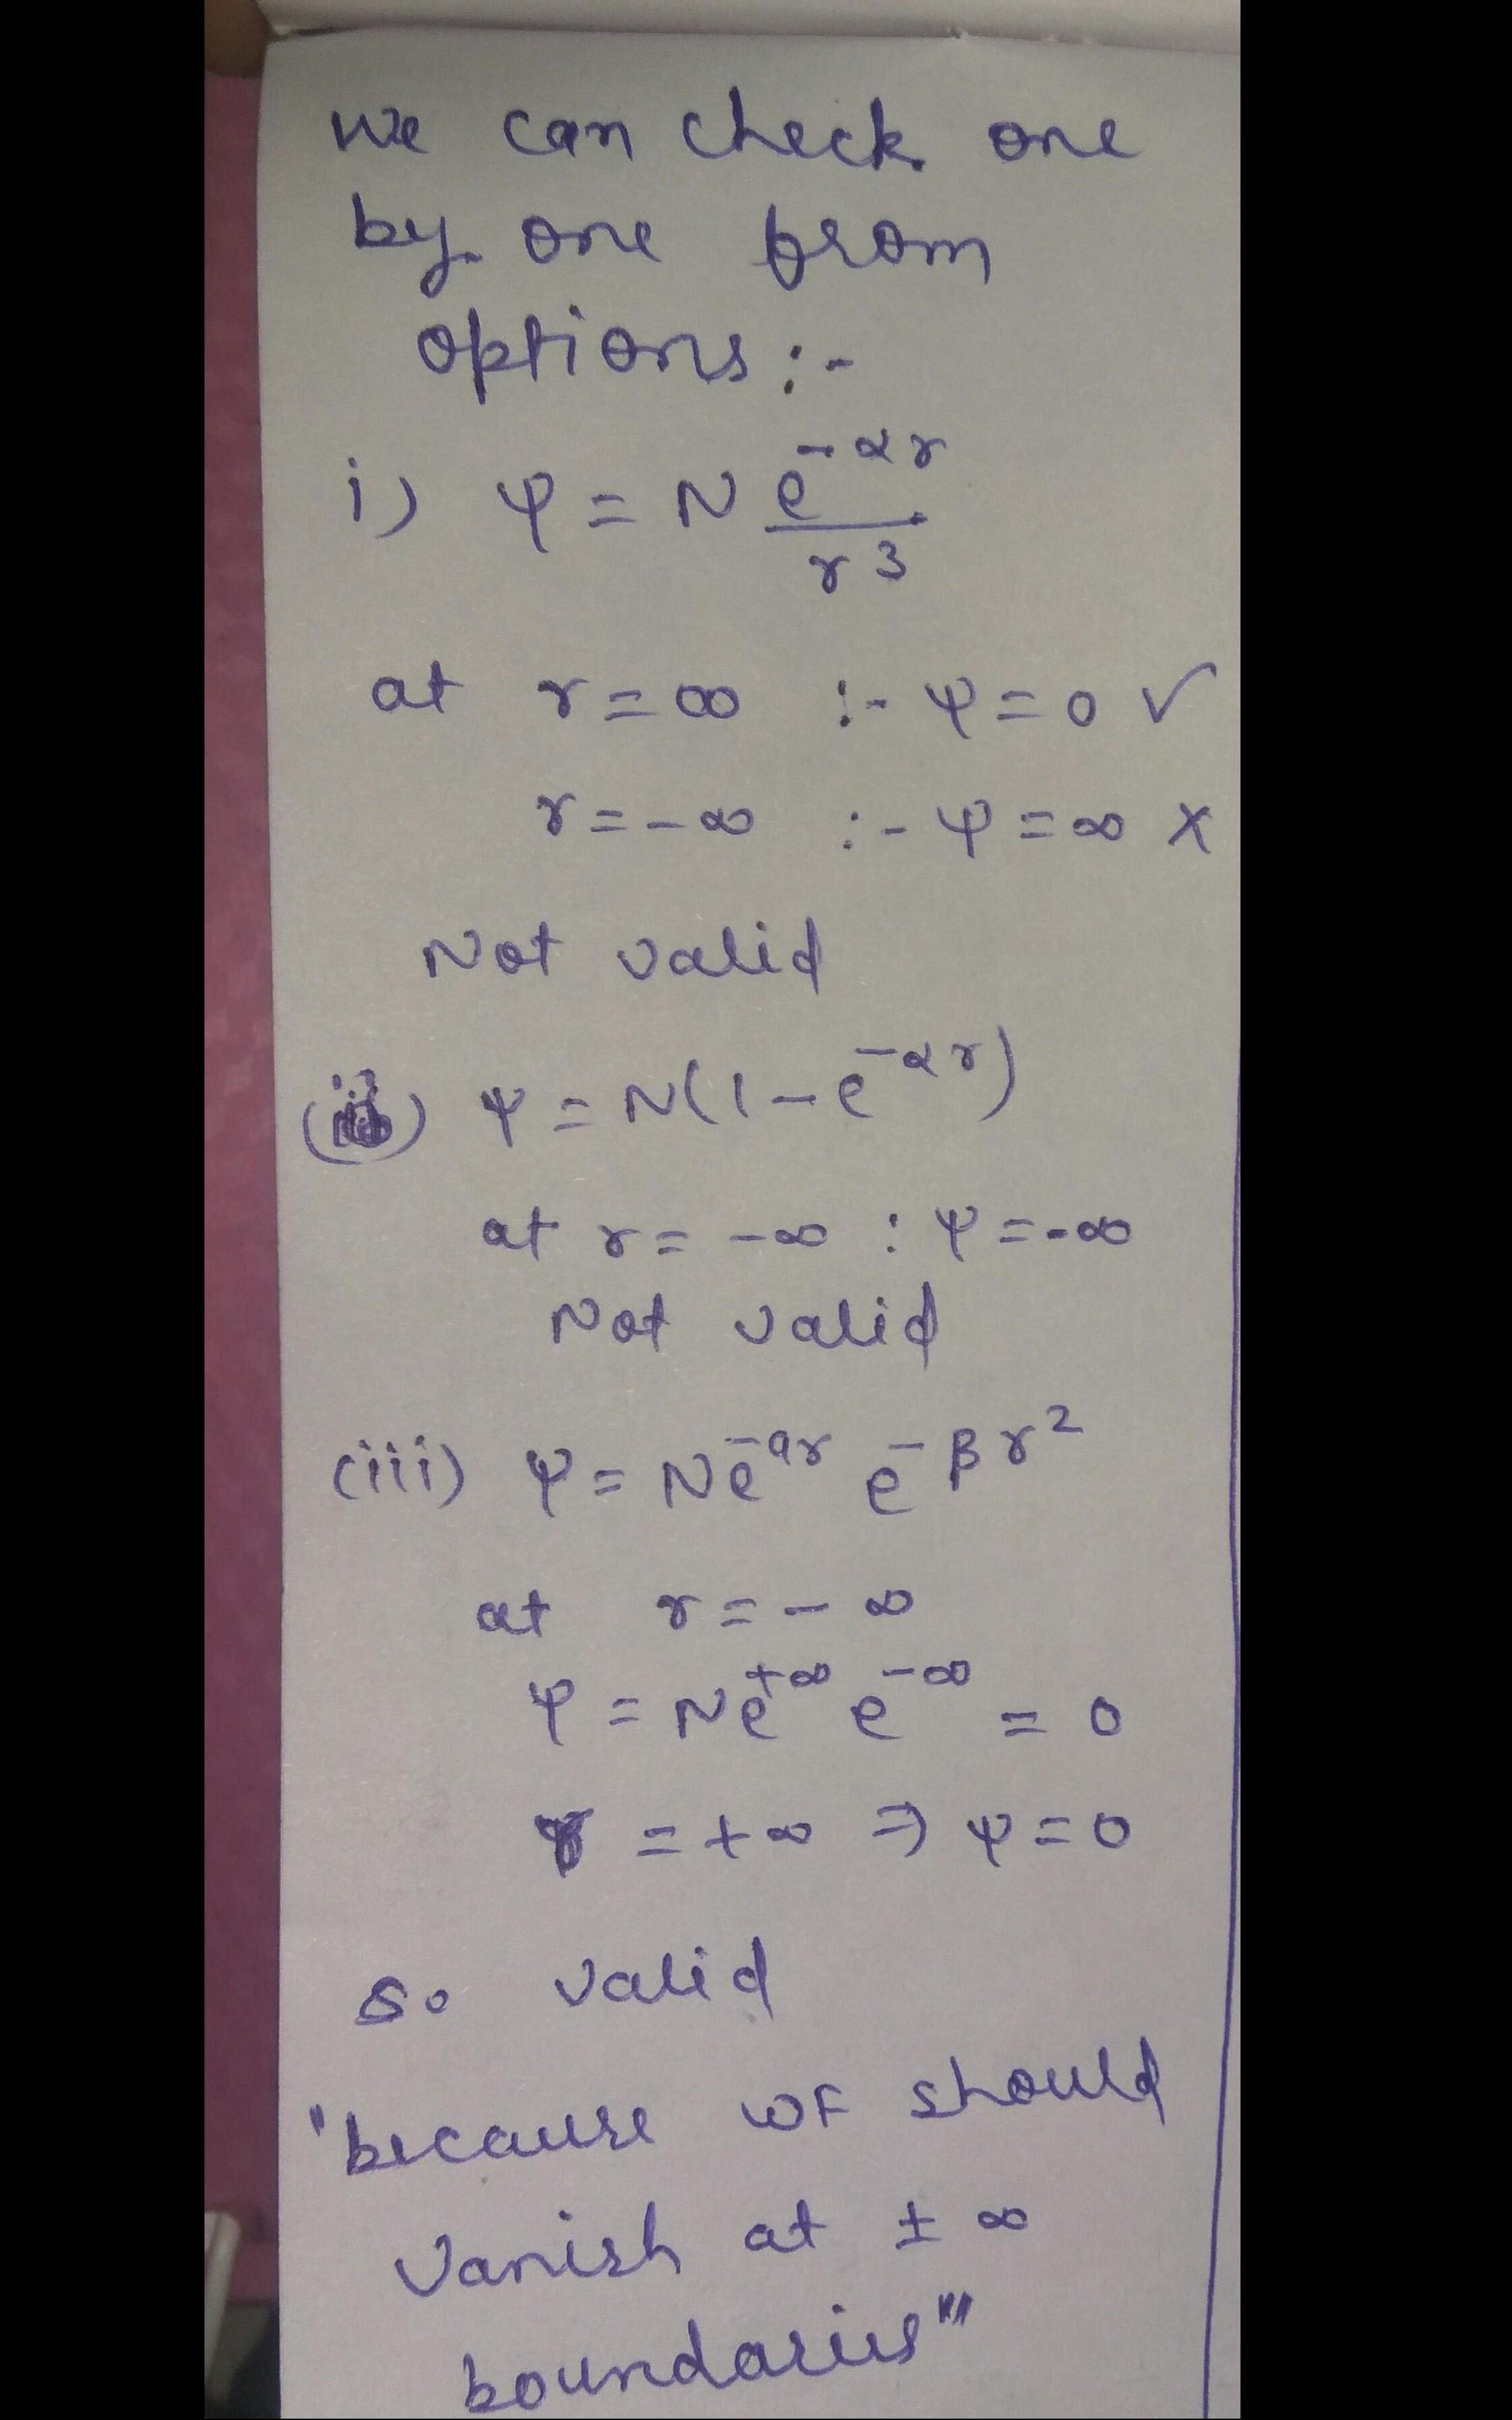 we can check one
by one from
options :-
i) ψ = N e^{-αr} / r^3
at r = ∞ :- ψ = 0 ✓
r = -∞ :- ψ = ∞ ×
Not valid
(ii) ψ = N(1 - e^{-αr})
at r = -∞ : ψ = -∞
Not valid
(iii) ψ = N e^{-αr} e^{-βr^2}
at r = -∞
ψ = N e^{+∞} e^{-∞} = 0
r = +∞ ⇒ ψ = 0
So valid
"because WF should
vanish at ± ∞
boundaries"